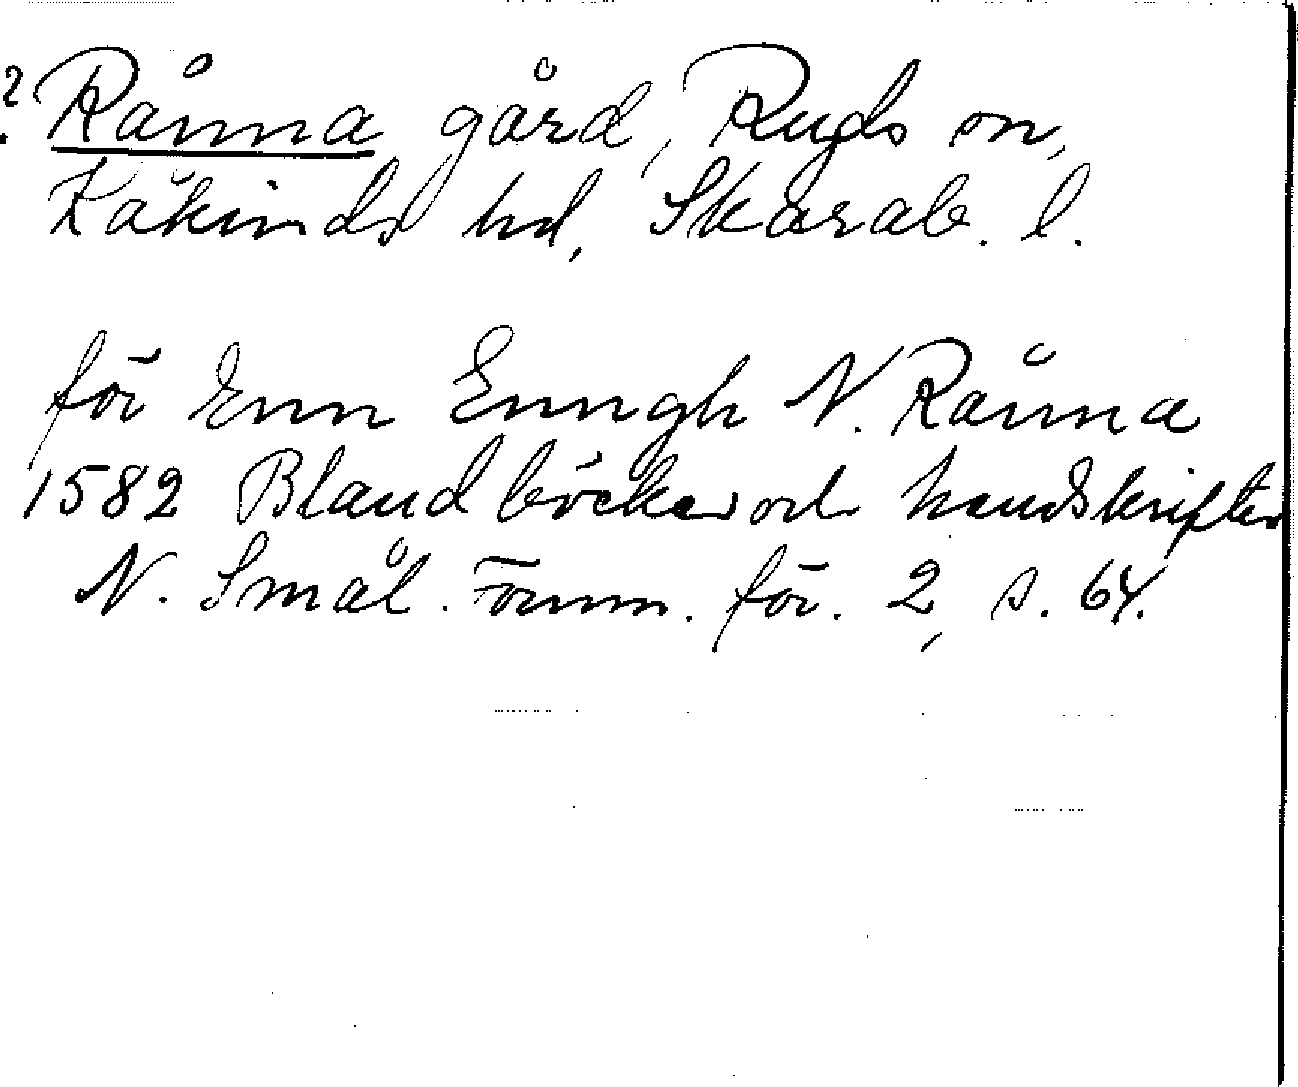 ? Rånna gård, Ryds sn,
Kåkinds hd, Skarab. l.
för Enn Enngh N. Rånna
1582 Bland böcker och handskrifter
N. Smål. Fornm. för. 2, s. 64.